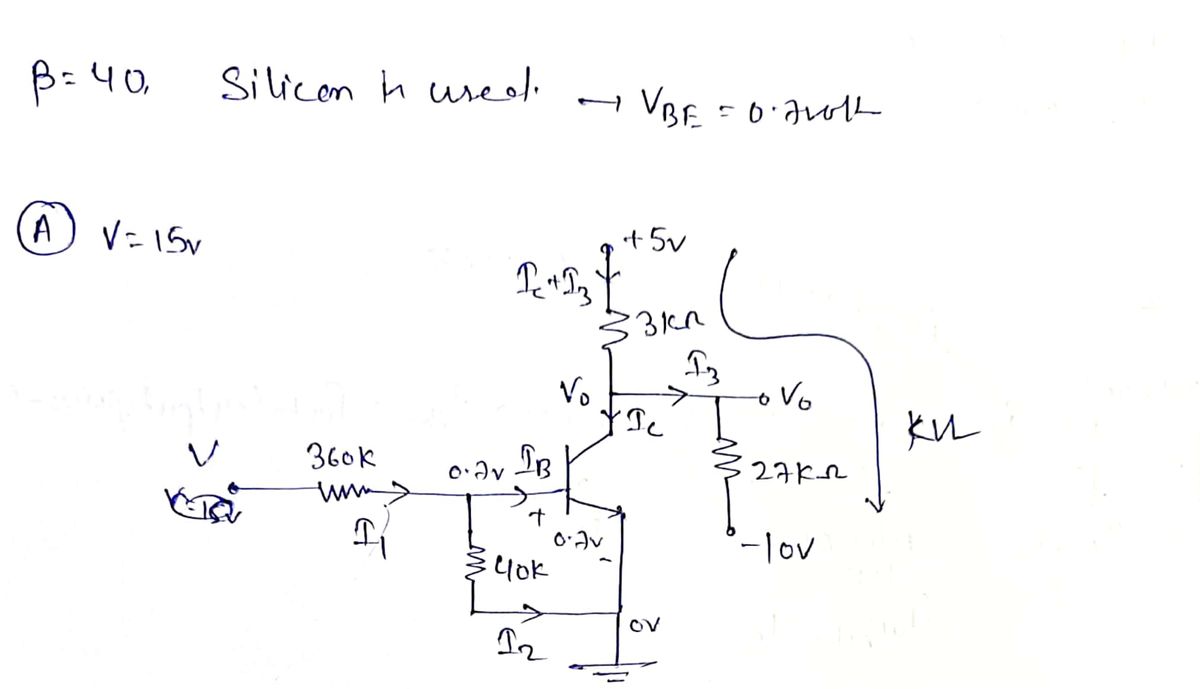 β = 40, Silicon is used. → VBE = 0.7volt
(A) V = 15v
+5v
Ic+I3
3kΩ
I3
V0
V0
Ic
KVL
V
360k
0.7v
IB
27kΩ
I1
+
0.7v
-
-10V
40k
0V
I2